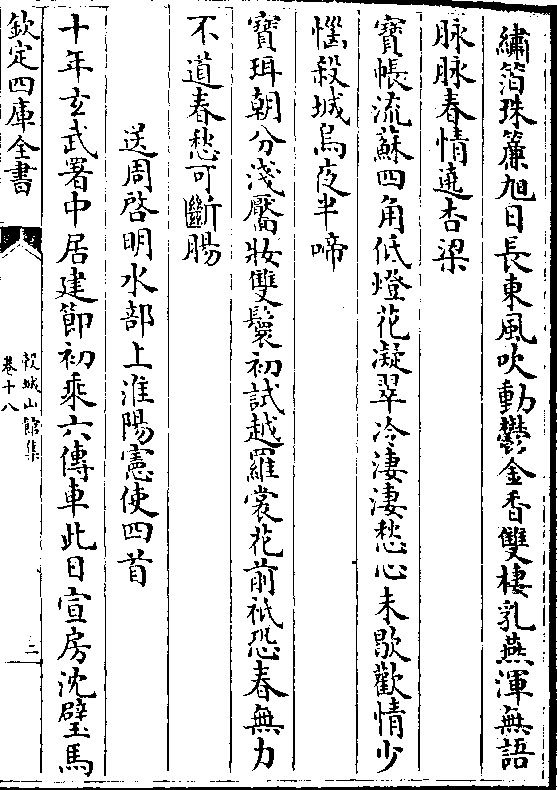 繡箔珠簾旭日長東風吹動鬱金香雙棲乳燕渾無語
脉脉春情遶杏梁
寶帳流蘇四角低燈花凝翠冷淒淒愁心未歇歡情少
惱殺城烏夜半啼
寶珥朝分淺靨妝雙鬟初試越羅裳花前祇恐春無力
不道春愁可斷腸
送周啓明水部上淮陽憲使四首
十年玄武署中居建節初乘六傳車此日宣房沈璧馬
欽定四庫全書
穀城山館集
卷十八
三